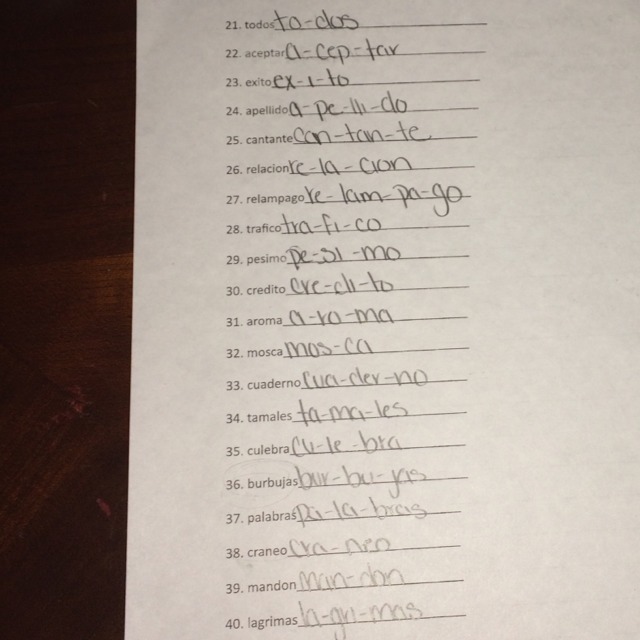 21. todos to-dos
22. aceptar a-cep-tar
23. exito ex-i-to
24. apellido a-pe-lli-do
25. cantante can-tan-te
26. relacion re-la-cion
27. relampago re-lam-pa-go
28. trafico tra-fi-co
29. pesimo pe-si-mo
30. credito cre-di-to
31. aroma a-ro-ma
32. mosca mos-ca
33. cuaderno cua-der-no
34. tamales ta-ma-les
35. culebra cu-le-bra
36. burbujas bur-bu-jas
37. palabras pa-la-bras
38. craneo cra-neo
39. mandon man-don
40. lagrimas la-gri-mas